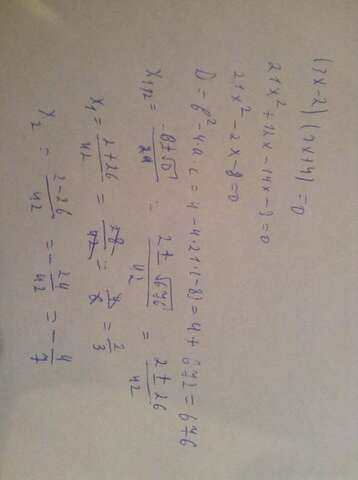 (3x-2)(7x+4)=0
21x²+12x-14x-8=0
21x²-2x-8=0
D=b²-4·a·c=4-4·21·(-8)=4+672=676
x₁,₂=(-b±√D)/2a = (2±√676)/42 = (2±26)/42
x₁=(2+26)/42=28/42=4/6=2/3
x₂=(2-26)/42=-24/42=-4/7